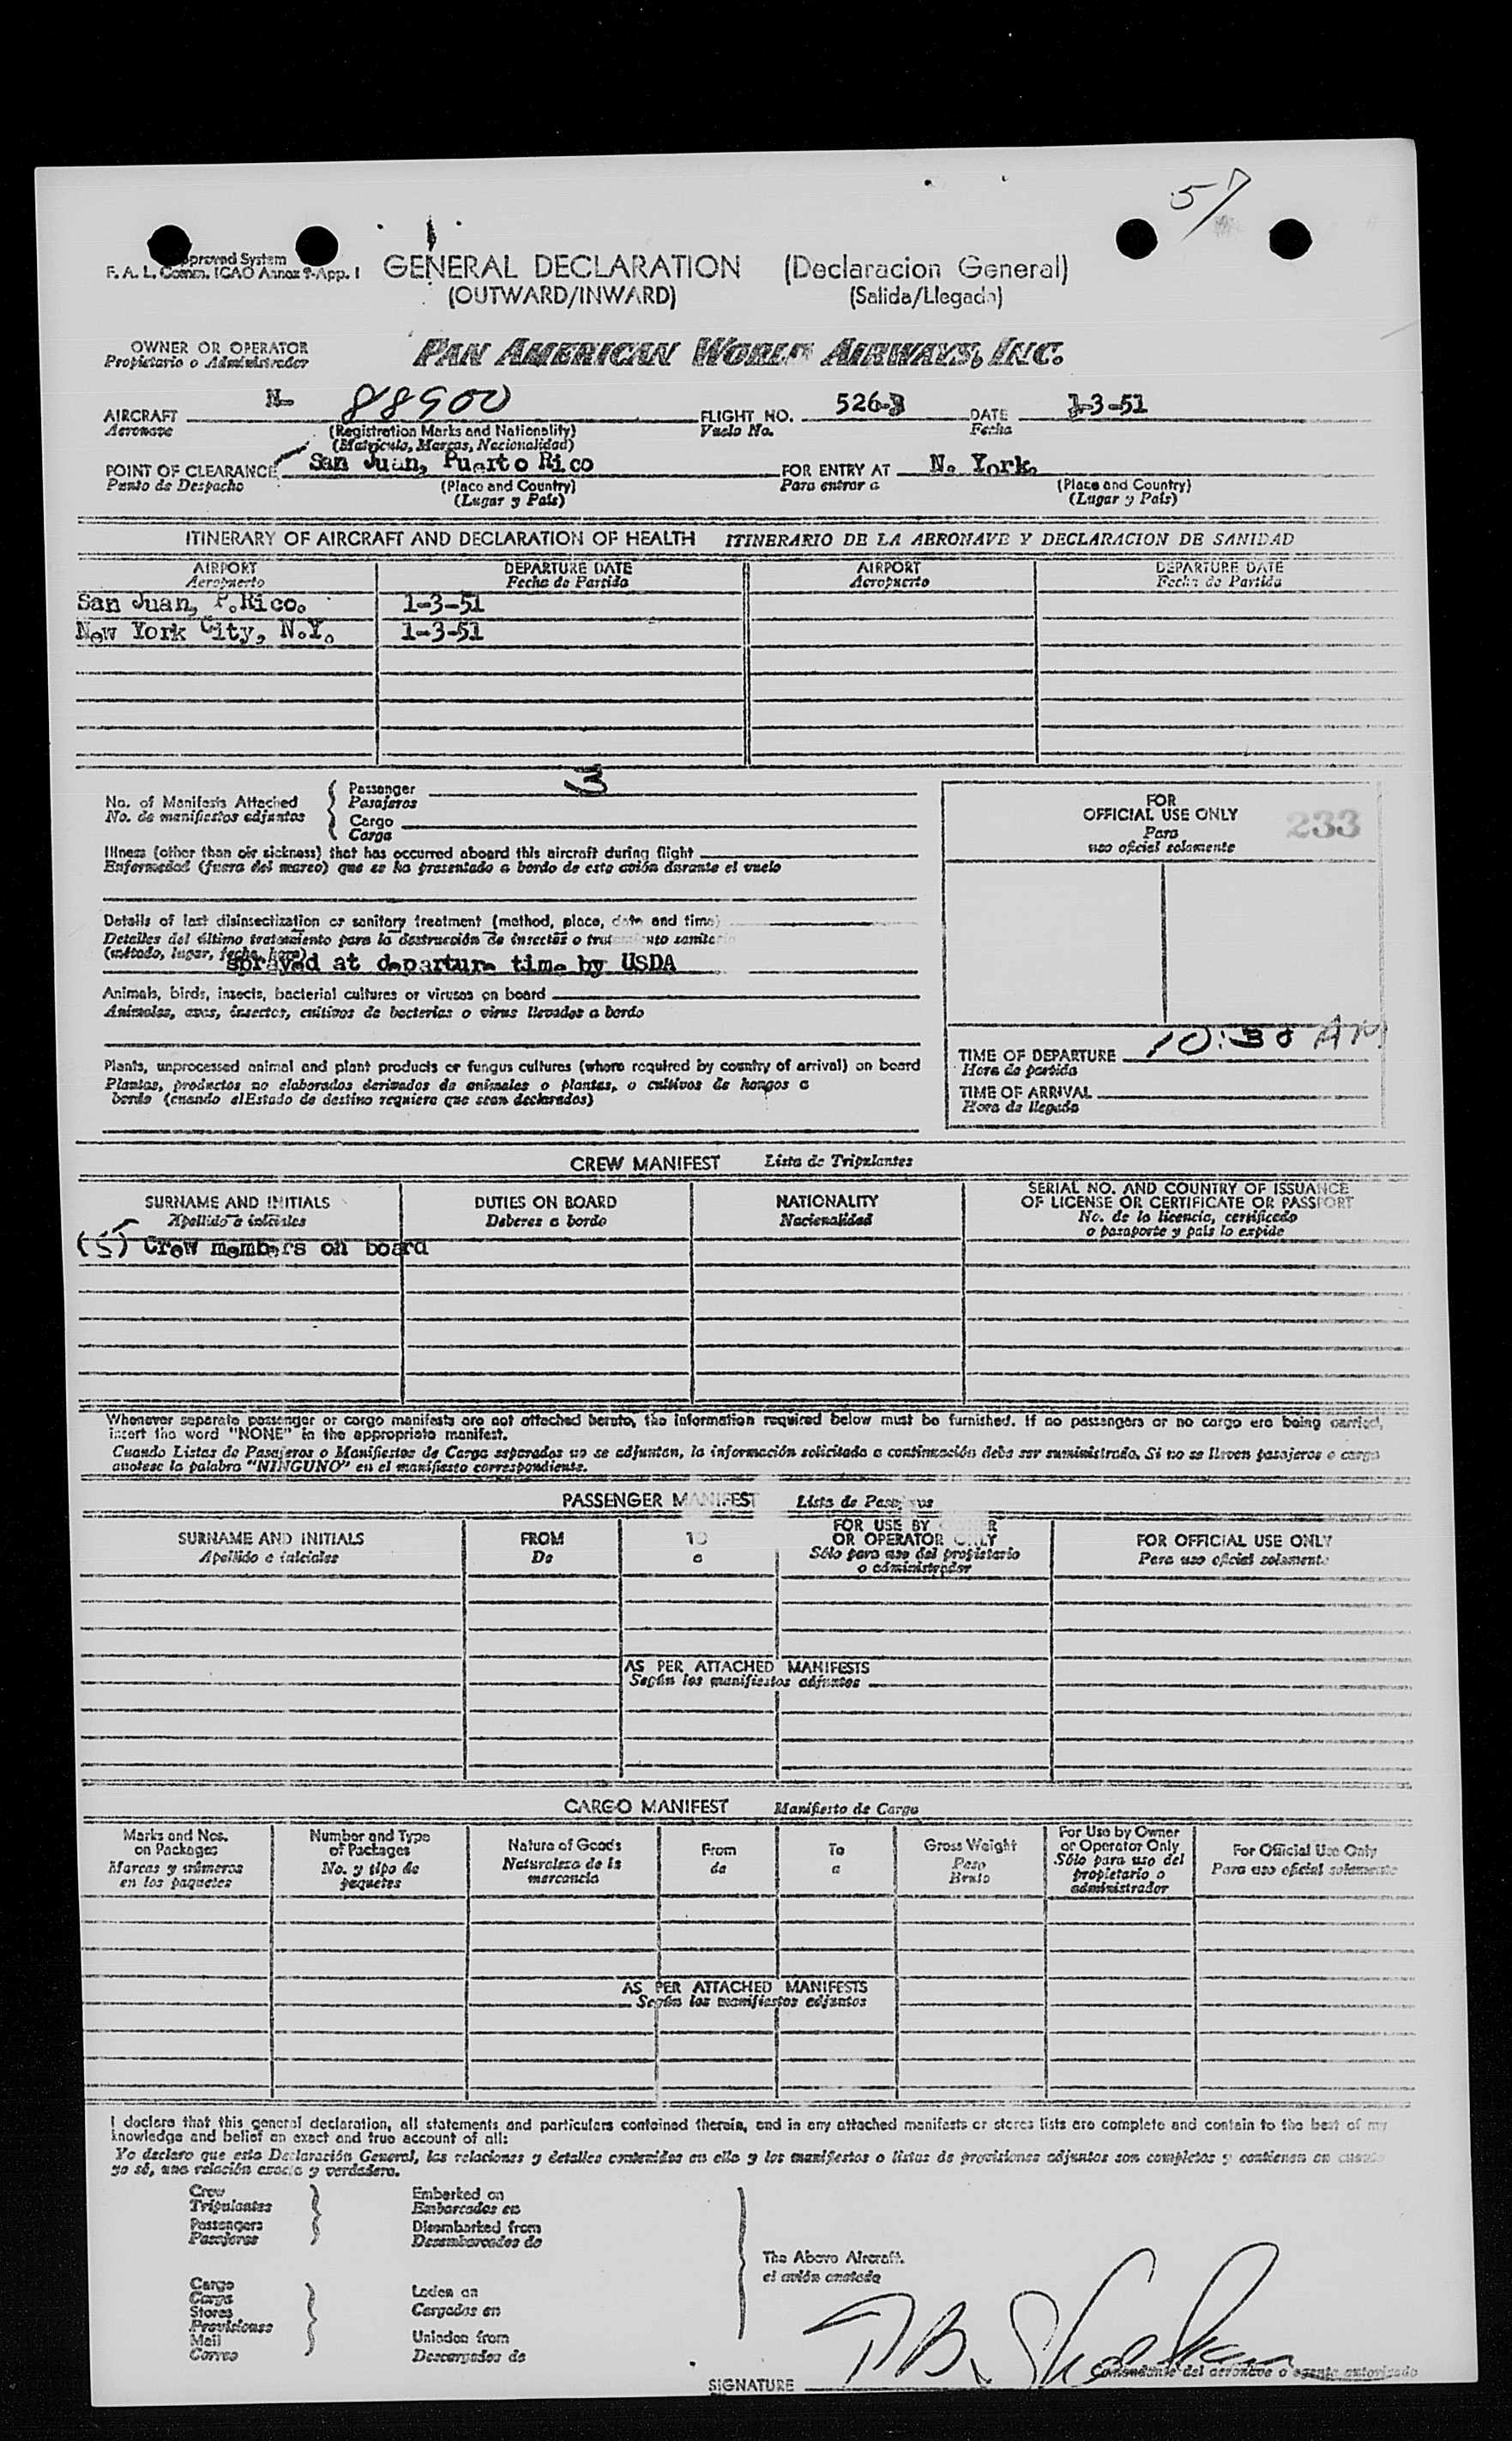 57
Approved System
F. A. L. Comm. ICAO Annex 9-App. I
GENERAL DECLARATION (Declaracion General)
(OUTWARD/INWARD) (Salida/Llegada)
OWNER OR OPERATOR PAN AMERICAN WORLD AIRWAYS, INC.
Propietario o Administrador
AIRCRAFT N- 88900 FLIGHT NO. 526-3 DATE 1-3-51
Aeronave (Registration Marks and Nationality) Vuelo No. Fecha
(Matricula, Marcas, Nacionalidad)
POINT OF CLEARANCE San Juan, Puerto Rico FOR ENTRY AT N. York.
Punto de Despacho (Place and Country) Para entrar a (Place and Country)
(Lugar y País) (Lugar y País)
ITINERARY OF AIRCRAFT AND DECLARATION OF HEALTH ITINERARIO DE LA AERONAVE Y DECLARACION DE SANIDAD
AIRPORT DEPARTURE DATE AIRPORT DEPARTURE DATE
Aeropuerto Fecha de Partida Aeropuerto Fecha de Partida
San Juan, P.Rico. 1-3-51
New York City, N.Y. 1-3-51
No. of Manifests Attached Passenger 3
No. de manifiestos adjuntos Pasajeros
Cargo
Carga
FOR
OFFICIAL USE ONLY 233
Para
uso oficial solamente
Illness (other than air sickness) that has occurred aboard this aircraft during flight
Enfermedad (fuera del mareo) que se ha presentado a bordo de este avión durante el vuelo
Details of last disinsectization or sanitary treatment (method, place, date and time)
Detalles del último tratamiento para la destrucción de insectos o tratamiento sanitario
(método, lugar, fecha, hora)
sprayed at departure time by USDA
Animals, birds, insects, bacterial cultures or viruses on board
Animales, aves, insectos, cultivos de bacterias o virus llevados a bordo
Plants, unprocessed animal and plant products or fungus cultures (where required by country of arrival) on board
Plantas, productos no elaborados derivados de animales o plantas, o cultivos de hongos a
bordo (cuando elEstado de destino requiera que sean declarados)
TIME OF DEPARTURE 10:30 AM
Hora de partida
TIME OF ARRIVAL
Hora de llegada
CREW MANIFEST Lista de Tripulantes
SURNAME AND INITIALS DUTIES ON BOARD NATIONALITY SERIAL NO. AND COUNTRY OF ISSUANCE
OF LICENSE OR CERTIFICATE OR PASSPORT
Apellido e iniciales Deberes a bordo Nacionalidad No. de la licencia, certificado
o pasaporte y país lo expide
(5) Crew members on board
Whenever separate passenger or cargo manifests are not attached hereto, the information required below must be furnished. If no passengers or no cargo are being carried,
insert the word "NONE" in the appropriate manifest.
Cuando Listas de Pasajeros o Manifiestos de Carga separados no se adjuntan, la información solicitada a continuación debe ser suministrada. Si no se llevan pasajeros o carga
anotese la palabra "NINGUNO" en el manifiesto correspondiente.
PASSENGER MANIFEST Lista de Pasajeros
SURNAME AND INITIALS FROM TO FOR USE BY OWNER
OR OPERATOR ONLY FOR OFFICIAL USE ONLY
Apellido e iniciales De a Sólo para uso del propietario
o administrador Para uso oficial solamente
AS PER ATTACHED MANIFESTS
Según los manifiestos adjuntos
CARGO MANIFEST Manifiesto de Carga
Marks and Nos.
on Packages
Marcas y números
en los paquetes
Number and Type
of Packages
No. y tipo de
paquetes
Nature of Goods
Naturaleza de la
mercancía
From
de
To
a
Gross Weight
Peso
Bruto
For Use by Owner
or Operator Only
Sólo para uso del
propietario o
administrador
For Official Use Only
Para uso oficial solamente
AS PER ATTACHED MANIFESTS
Según los manifiestos adjuntos
I declare that this general declaration, all statements and particulars contained therein, and in any attached manifests or stores lists are complete and contain to the best of my
knowledge and belief an exact and true account of all:
Yo declaro que esta Declaración General, las relaciones y detalles contenidos en ella y los manifiestos o listas de provisiones adjuntos son completos y contienen en cuanto
yo sé, una relación exacta y verdadera.
Crew
Tripulantes
Passengers
Pasajeros
Embarked on
Embarcados en
Disembarked from
Desembarcados de
Cargo
Carga
Stores
Provisiones
Mail
Correo
Laden on
Cargados en
Unladen from
Descargados de
The Above Aircraft.
el avión anotado
SIGNATURE
Comandante del aeronave o agente autorizado